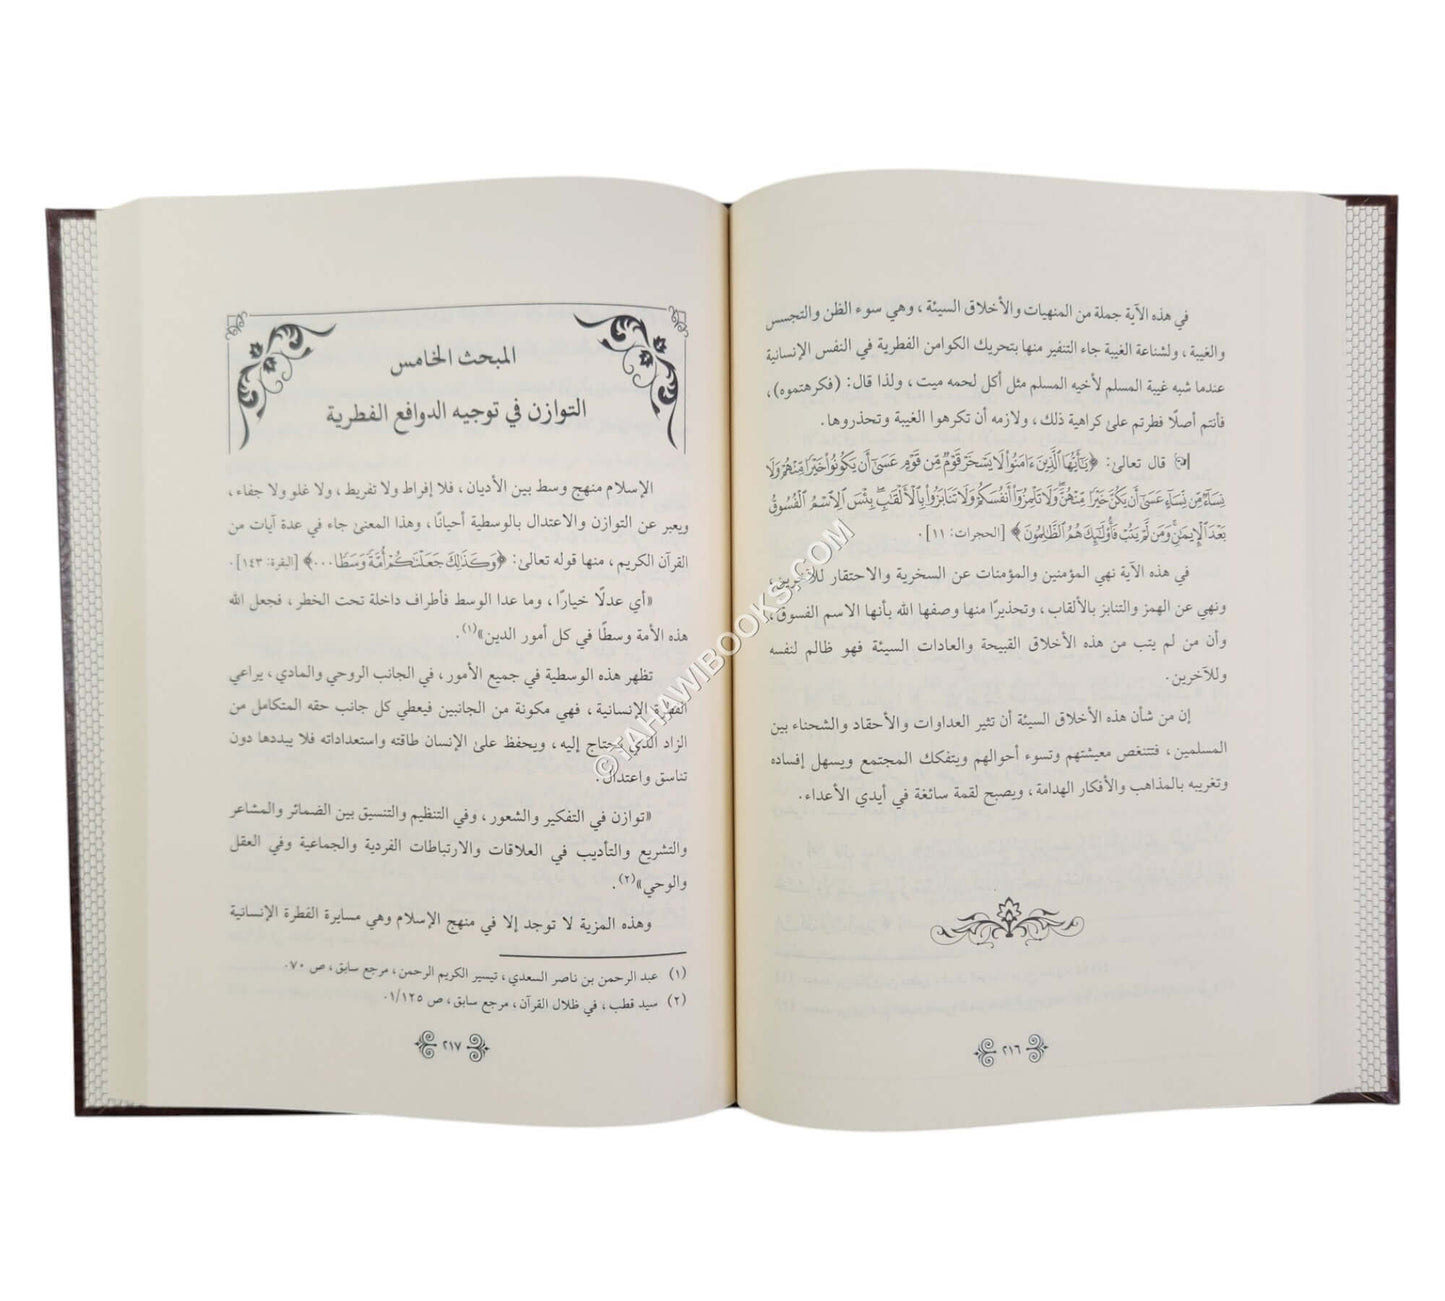 في هذه الآية جملة من المنهيات والأخلاق السيئة، وهي سوء الظن والتجسس
والغيبة، ولشناعة الغيبة جاء التنفير منها بتحريك الكوامن الفطرية في النفس الإنسانية
عندما شبه غيبة المسلم لأخيه المسلم مثل أكل لحمه ميت، ولذا قال: (فكرهتموه)،
فأنتم أصلًا فطرتم علىٰ كراهية ذلك، ولازمه أن تكرهوا الغيبة وتحذروها.
قال تعالىٰ: ﴿يَٰٓأَيُّهَا ٱلَّذِينَ ءَامَنُوا۟ لَا يَسْخَرْ قَوْمٌ مِّن قَوْمٍ عَسَىٰٓ أَن يَكُونُوا۟ خَيْرًا مِّنْهُمْ وَلَا
نِسَآءٌ مِّن نِّسَآءٍ عَسَىٰٓ أَن يَكُنَّ خَيْرًا مِّنْهُنَّ ۖ وَلَا تَلْمِزُوٓا۟ أَنفُسَكُمْ وَلَا تَنَابَزُوا۟ بِٱلْأَلْقَٰبِ ۖ بِئْسَ ٱلِٱسْمُ ٱلْفُسُوقُ
بَعْدَ ٱلْإِيمَٰنِ ۚ وَمَن لَّمْ يَتُبْ فَأُو۟لَٰٓئِكَ هُمُ ٱلظَّٰلِمُونَ﴾ [الحجرات: ١١].
في هذه الآية نهي المؤمنين والمؤمنات عن السخرية والاحتقار للآخرين،
ونهي عن الهمز والتنابز بالألقاب، وتحذيرًا منها وصفها الله بأنها الاسم الفسوق،
وأن من لم يتب من هذه الأخلاق القبيحة والعادات السيئة فهو ظالم لنفسه
وللآخرين.
إن من شأن هذه الأخلاق السيئة أن تثير العداوات والأحقاد والشحناء بين
المسلمين، فتتنغص معيشتهم وتسوء أحوالهم ويتفكك المجتمع ويسهل إفساده
وتغريبه بالمذاهب والأفكار الهدامة، ويصبح لقمة سائغة في أيدي الأعداء.
٢١٦
المبحث الخامس
التوازن في توجيه الدوافع الفطرية
الإسلام منهج وسط بين الأديان، فلا إفراط ولا تفريط، ولا غلو ولا جفاء،
ويعبر عن التوازن والاعتدال بالوسطية أحيانًا، وهذا المعنىٰ جاء في عدة آيات من
القرآن الكريم، منها قوله تعالىٰ: ﴿وَكَذَٰلِكَ جَعَلْنَٰكُمْ أُمَّةً وَسَطًا...﴾ [البقرة: ١٤٣].
«أي عدلًا خيارًا، وما عدا الوسط فأطراف داخلة تحت الخطر، فجعل الله
هذه الأمة وسطًا في كل أمور الدين»(١).
تظهر هذه الوسطية في جميع الأمور، في الجانب الروحي والمادي، يراعي
الفطرة الإنسانية، فهي مكونة من الجانبين فيعطي كل جانب حقه المتكامل من
الزاد الذي يحتاج إليه، ويحفظ علىٰ الإنسان طاقته واستعداداته فلا يبددها دون
تناسق واعتدال.
«توازن في التفكير والشعور، وفي التنظيم والتنسيق بين الضمائر والمشاعر
والتشريع والتأديب في العلاقات والارتباطات الفردية والجماعية وفي العقل
والوحي»(٢).
وهذه المزية لا توجد إلا في منهج الإسلام وهي مسايرة الفطرة الإنسانية
(١) عبد الرحمن بن ناصر السعدي، تيسير الكريم الرحمن، مرجع سابق، ص ٧٠.
(٢) سيد قطب، في ظلال القرآن، مرجع سابق، ص ٠١/١٢٥
٢١٧
©TAHAWIBOOKS.COM